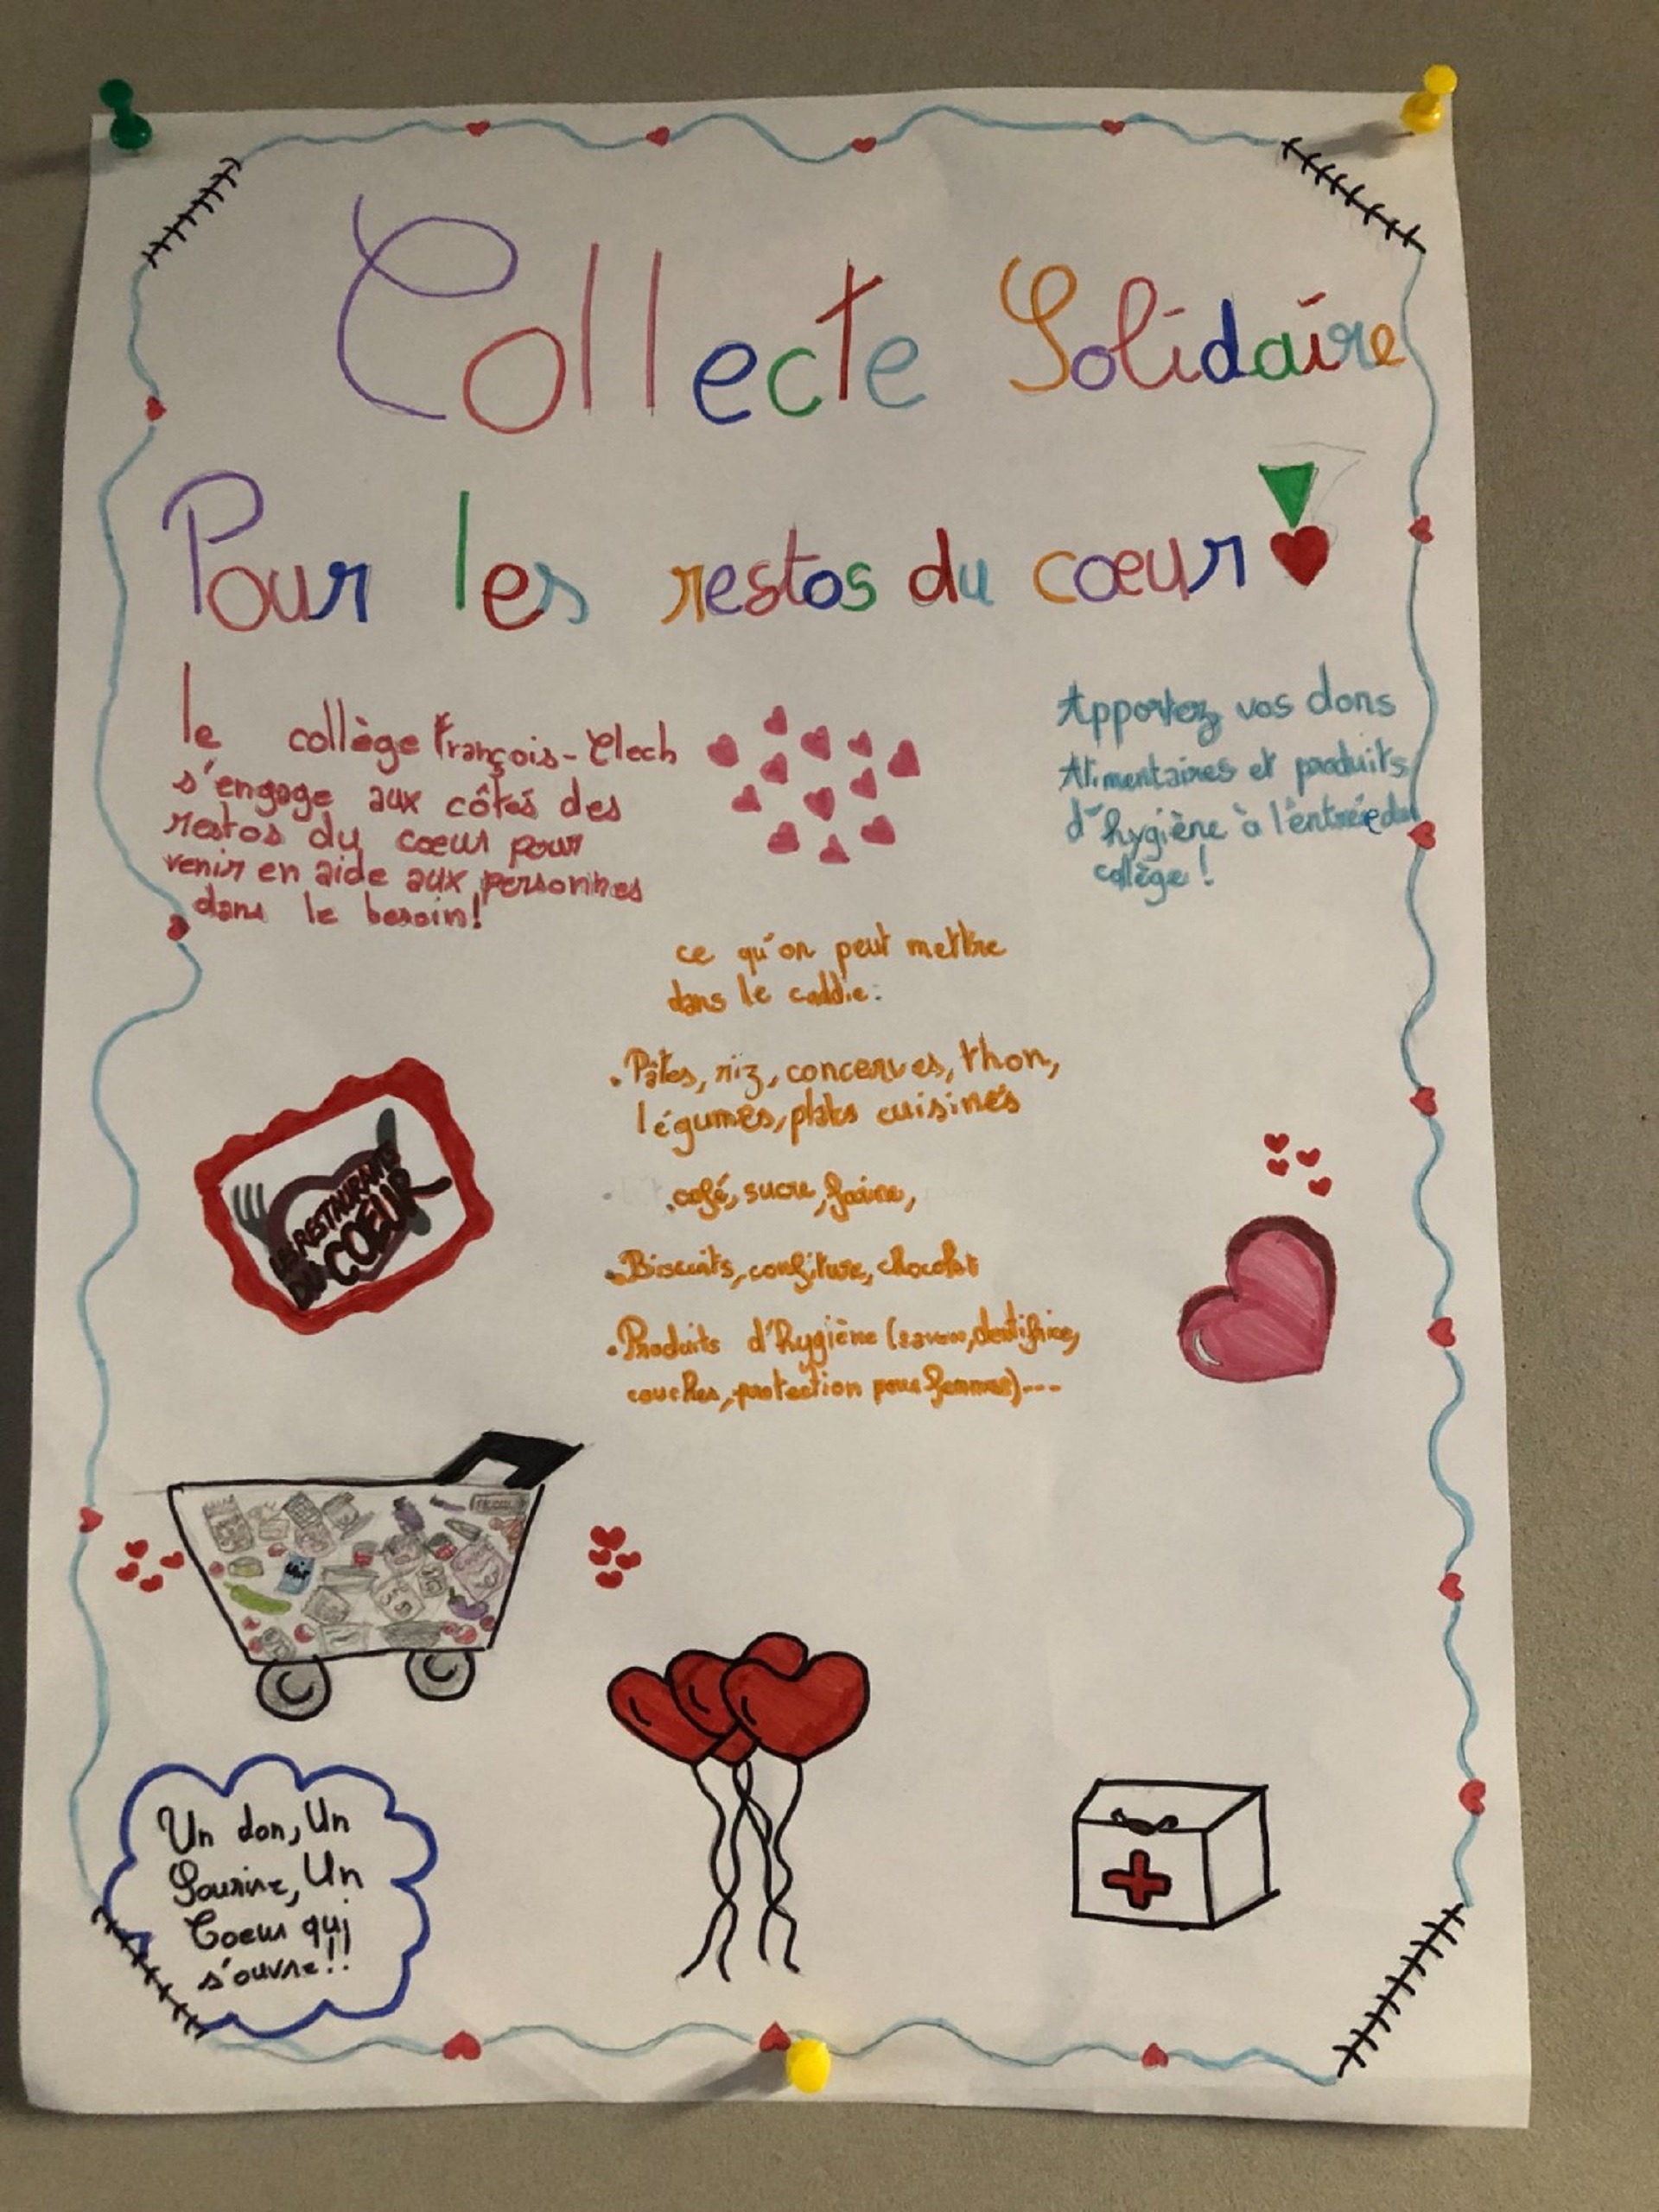 Collecte Solidaire
Pour les restos du cœur
le collège François-Clech
s'engage aux côtés des
restos du coeur pour
venir en aide aux personnes
dans le besoin!
Apportez vos dons
Alimentaires et produits
d'hygiène à l'entrée du
collège!
ce qu'on peut mettre
dans le caddie:
.Pâtes, riz, concerves, thon,
légumes, plats cuisinés
.café, sucre, farine,
.Biscuits, confiture, chocolat
.Produits d'hygiène (savon, dentifrice,
couches, protection pour femmes)---
LES RESTAURANTS
DU COEUR
Un don, Un
Sourire, Un
Coeur qui
s'ouvre!!